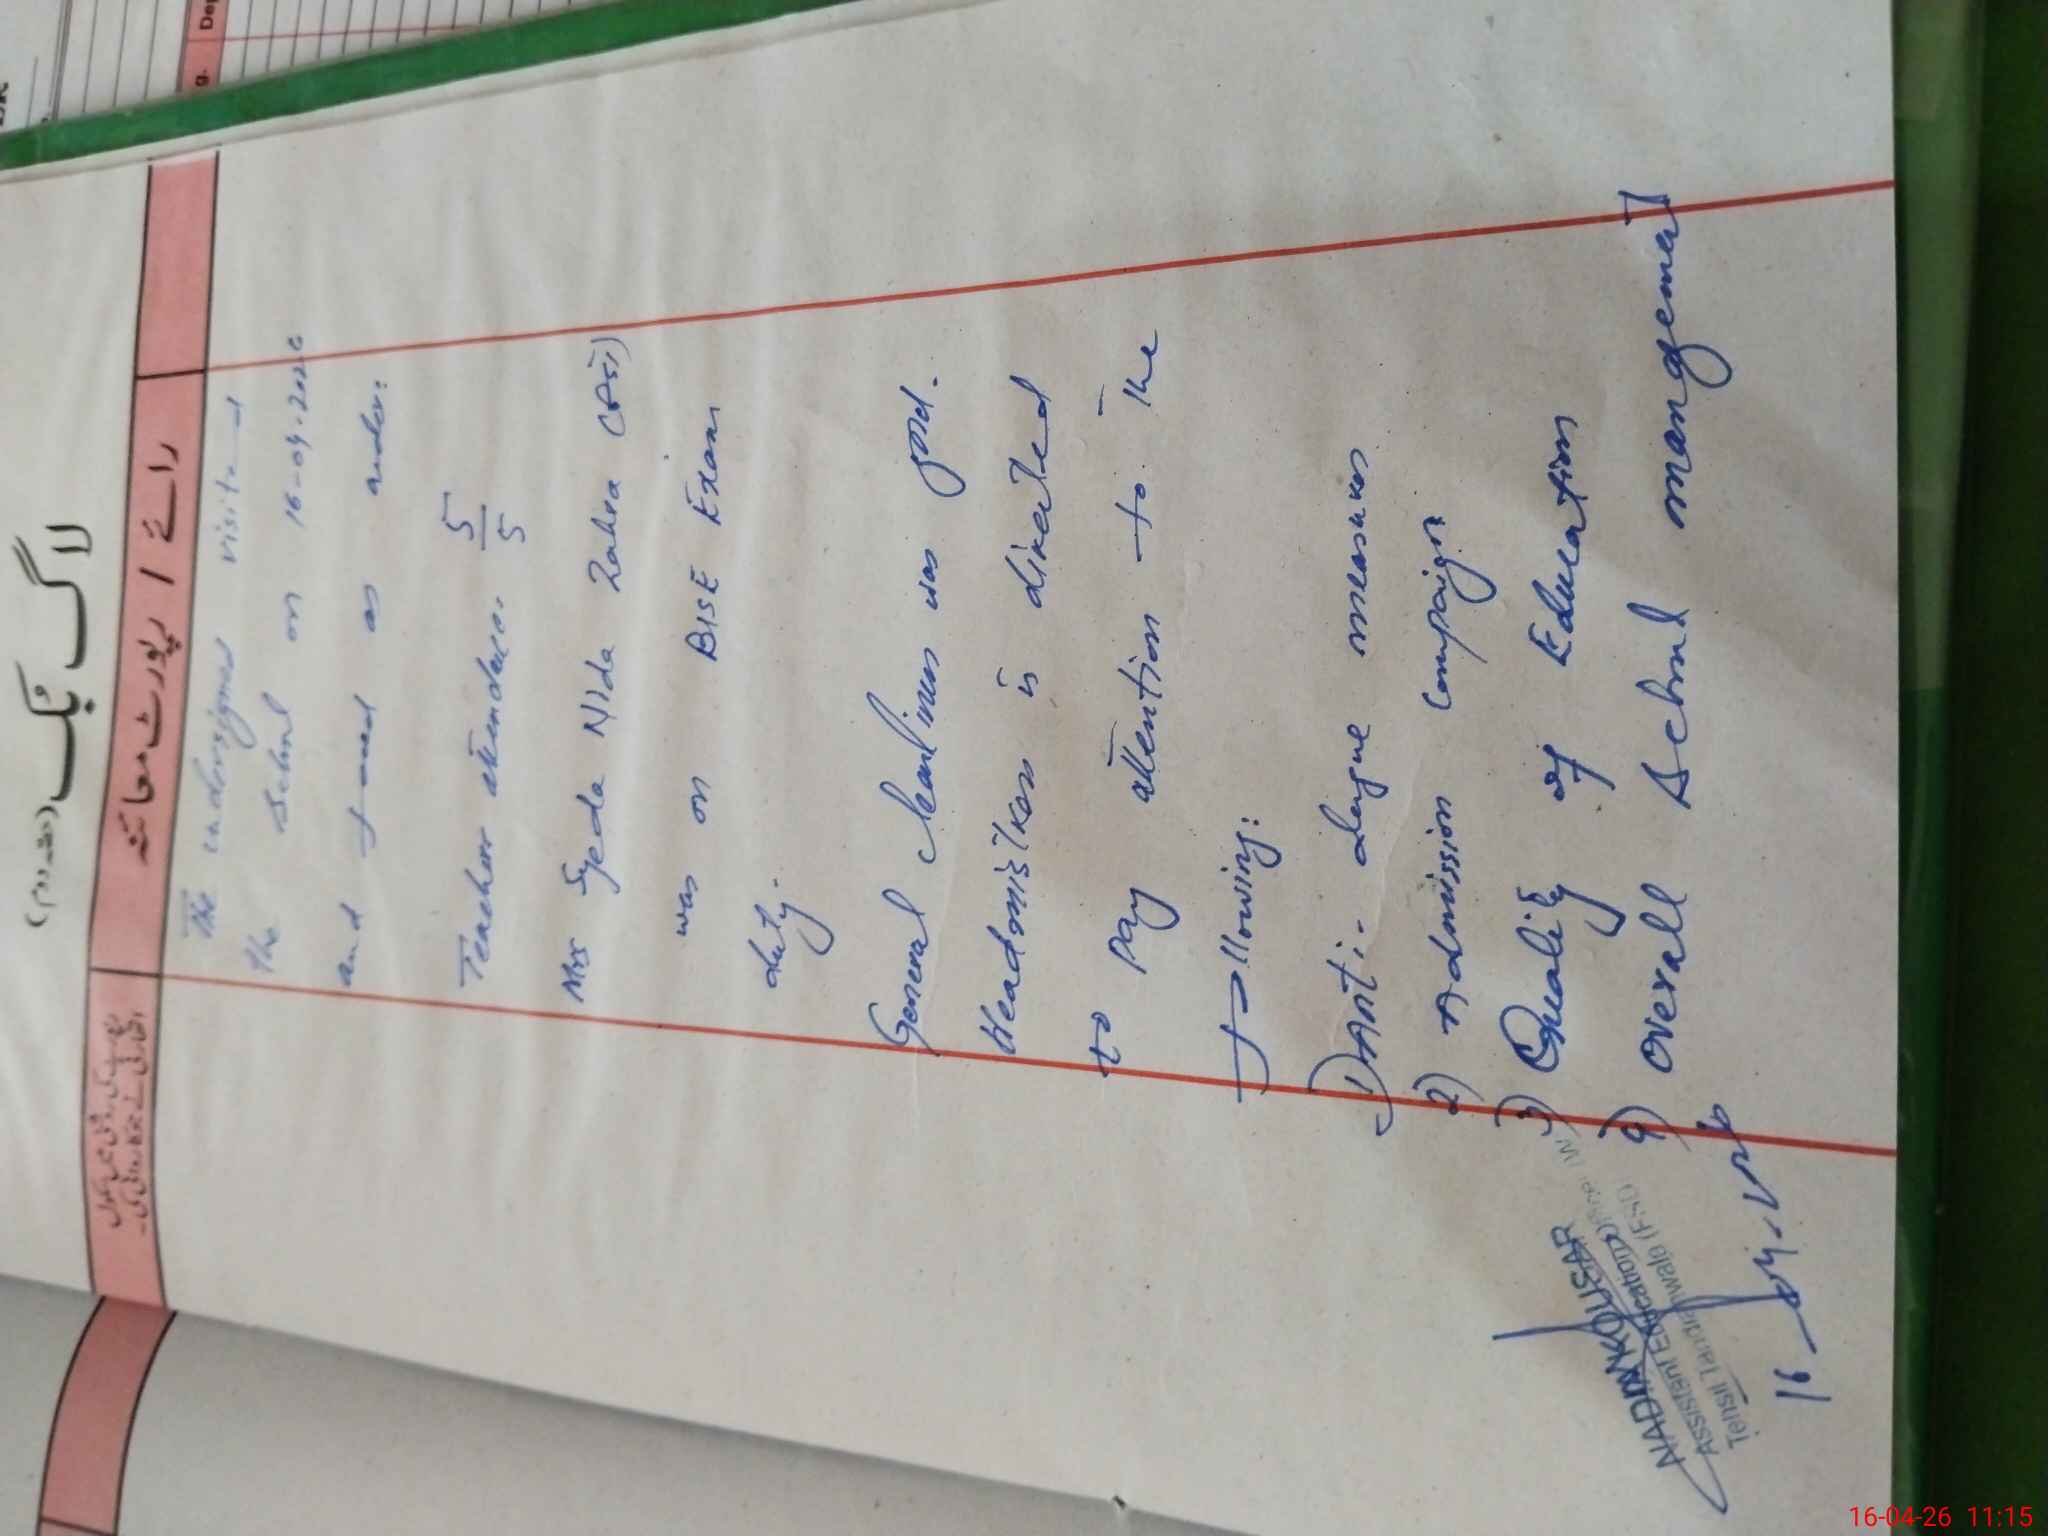 لاگ بُک (حصہ دوم)
رائے / رپورٹ معائنہ
The undersigned visited
the School on 16-04-2026
and found as under:
Teachers attendance. 5/5
Mrs Syeda Nida Zahra (PST)
was on BISE Exam
duty.
General cleanliness was good.
Headmistress is directed
to pay attention to the
following:
1) Anti-dengue measures
2) Admission Compaign
3) Quality of Education
4) Overall School mangement
NADIA KOUSAR
Assistant Education Officer (W)
Tehsil Tandlianwala (FSD)
16-04-26 11:15